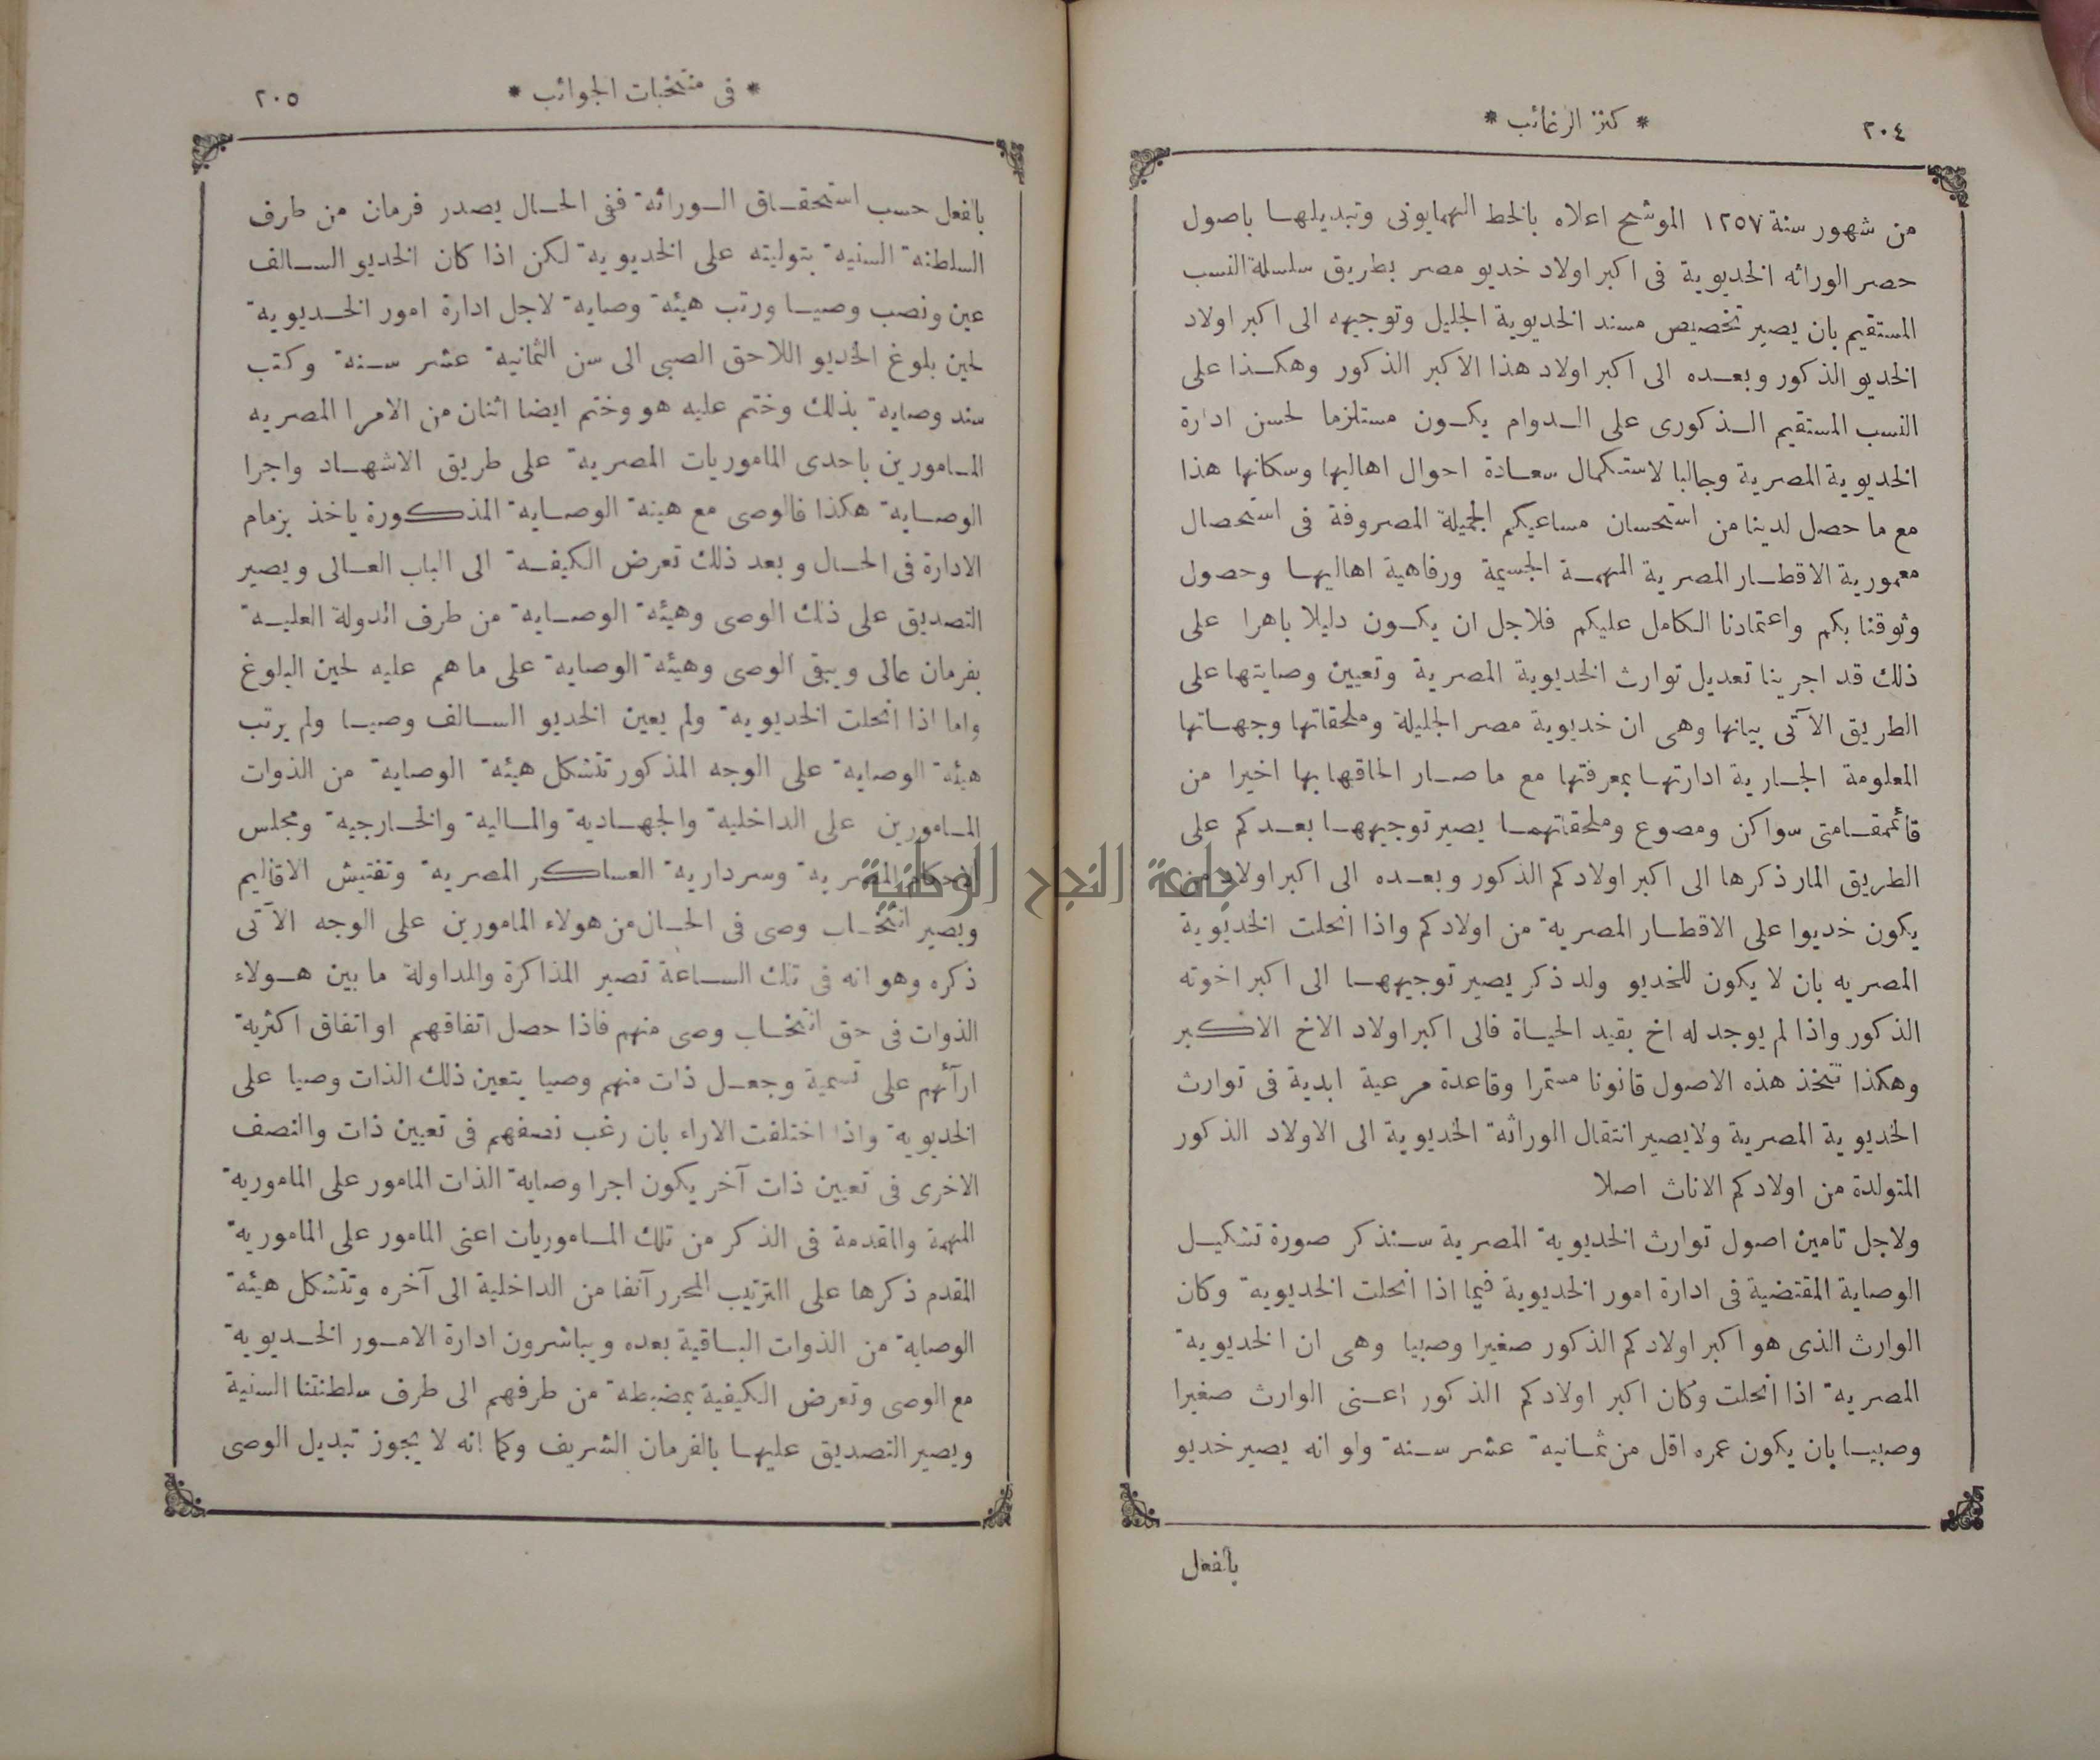 ٢٠٤
* كنز الرغائب *
من شهور سنة ١٢٥٧ الموشح اعلاه بالخط الهمايونى وتبديلها باصول
حصر الوراثه الخديوية فى اكبر اولاد خديو مصر بطريق سلسلة النسب
المستقيم بان يصير تخصيص مسند الخديوية الجليل وتوجيهه الى اكبر اولاد
الخديو الذكور وبعده الى اكبر اولاد هذا الاكبر الذكور وهكذا على
النسب المستقيم الذكورى على الدوام يكون مستلزما لحسن ادارة
الخديوية المصرية وجالبا لاستكمال سعادة احوال اهاليها وسكانها هذا
مع ما حصل لدينا من استحسان مساعيكم الجميلة المصروفة فى استحصال
معمورية الاقطار المصرية المهمة الجسيمة ورفاهية اهاليها وحصول
وثوقنا بكم واعتمادنا الكامل عليكم فلاجل ان يكون دليلا باهرا على
ذلك قد اجرينا تعديل توارث الخديوية المصرية وتعيين وصايتها على
الطريق الآتى بيانها وهى ان خديوية مصر الجليلة وملحقاتها وجهاتها
المعلومة الجارية ادارتها بمعرفتها مع ما صار الحاقها بها اخيرا من
قائممقامتى سواكن ومصوع وملحقاتهما يصير توجيهها بعدكم على
الطريق المار ذكرها الى اكبر اولادكم الذكور وبعده الى اكبر اولاد من
يكون خديوا على الاقطار المصرية من اولادكم واذا انحلت الخديوية
المصريه بان لا يكون للخديو ولد ذكر يصير توجيهها الى اكبر اخوته
الذكور واذا لم يوجد له اخ بقيد الحياة فالى اكبر اولاد الاخ الاكبر
وهكذا تتخذ هذه الاصول قانونا مستمرا وقاعدة مرعية ابدية فى توارث
الخديوية المصرية ولا يصير انتقال الوراثة الخديوية الى الاولاد الذكور
المتولدة من اولادكم الاناث اصلا
ولاجل تامين اصول توارث الخديوية المصرية سنذكر صورة تشكيل
الوصاية المقتضية فى ادارة امور الخديوية فيما اذا انحلت الخديوية وكان
الوارث الذى هو اكبر اولادكم الذكور صغيرا وصبيا وهى ان الخديوية
المصرية اذا انحلت وكان اكبر اولادكم الذكور اعنى الوارث صغيرا
وصبيا بان يكون عمره اقل من ثمانية عشر سنة ولو انه يصير خديو
بالفعل
* فى منتخبات الجوائب *
٢٠٥
بالفعل حسب استحقاق الوراثة ففى الحال يصدر فرمان من طرف
السلطنة السنية بتوليته على الخديوية لكن اذا كان الخديو السالف
عين ونصب وصيا ورتب هيئة وصاية لاجل ادارة امور الخديوية
لحين بلوغ الخديو اللاحق الصبى الى سن الثمانية عشر سنة وكتب
سند وصاية بذلك وختم عليه هو وختم ايضا اثنان من الامرا المصريه
المامورين باحدى الماموريات المصرية على طريق الاشهاد واجرا
الوصاية هكذا فالوصى مع هيئة الوصاية المذكورة ياخذ بزمام
الادارة فى الحال وبعد ذلك تعرض الكيفية الى الباب العالى ويصير
التصديق على ذلك الوصى وهيئة الوصاية من طرف الدولة العلية
بفرمان عالى ويبقى الوصى وهيئة الوصاية على ما هم عليه لحين البلوغ
واما اذا انحلت الخديوية ولم يعين الخديو السالف وصيا ولم يرتب
هيئة الوصاية على الوجه المذكور تتشكل هيئة الوصاية من الذوات
المامورين على الداخلية والجهادية والمالية والخارجية ومجلس
الاحكام المصرية وسردارية العساكر المصرية وتفتيش الاقاليم
ويصير انتخاب وصى فى الحال من هولاء المامورين على الوجه الآتى
ذكره وهو انه فى تلك الساعة تصير المذاكرة والمداولة ما بين هولاء
الذوات فى حق انتخاب وصى منهم فاذا حصل اتفاقهم او اتفاق اكثرية
ارآئهم على تسمية وجعل ذات منهم وصيا يتعين ذلك الذات وصيا على
الخديوية واذا اختلفت الاراء بان رغب نصفهم فى تعيين ذات والنصف
الاخرى فى تعيين ذات آخر يكون اجرا وصاية الذات المامور على المامورية
المهمة والمقدمة فى الذكر من تلك الماموريات اعنى المامور على المامورية
المقدم ذكرها على الترتيب المحرر آنفا من الداخلية الى آخره وتتشكل هيئة
الوصاية من الذوات الباقية بعده ويباشرون ادارة الامور الخديوية
مع الوصى وتعرض الكيفية بمضبطة من طرفهم الى طرف سلطنتنا السنية
ويصير التصديق عليها بالفرمان الشريف وكما انه لا يجوز تبديل الوصى
جامعة النجاح الوطنية